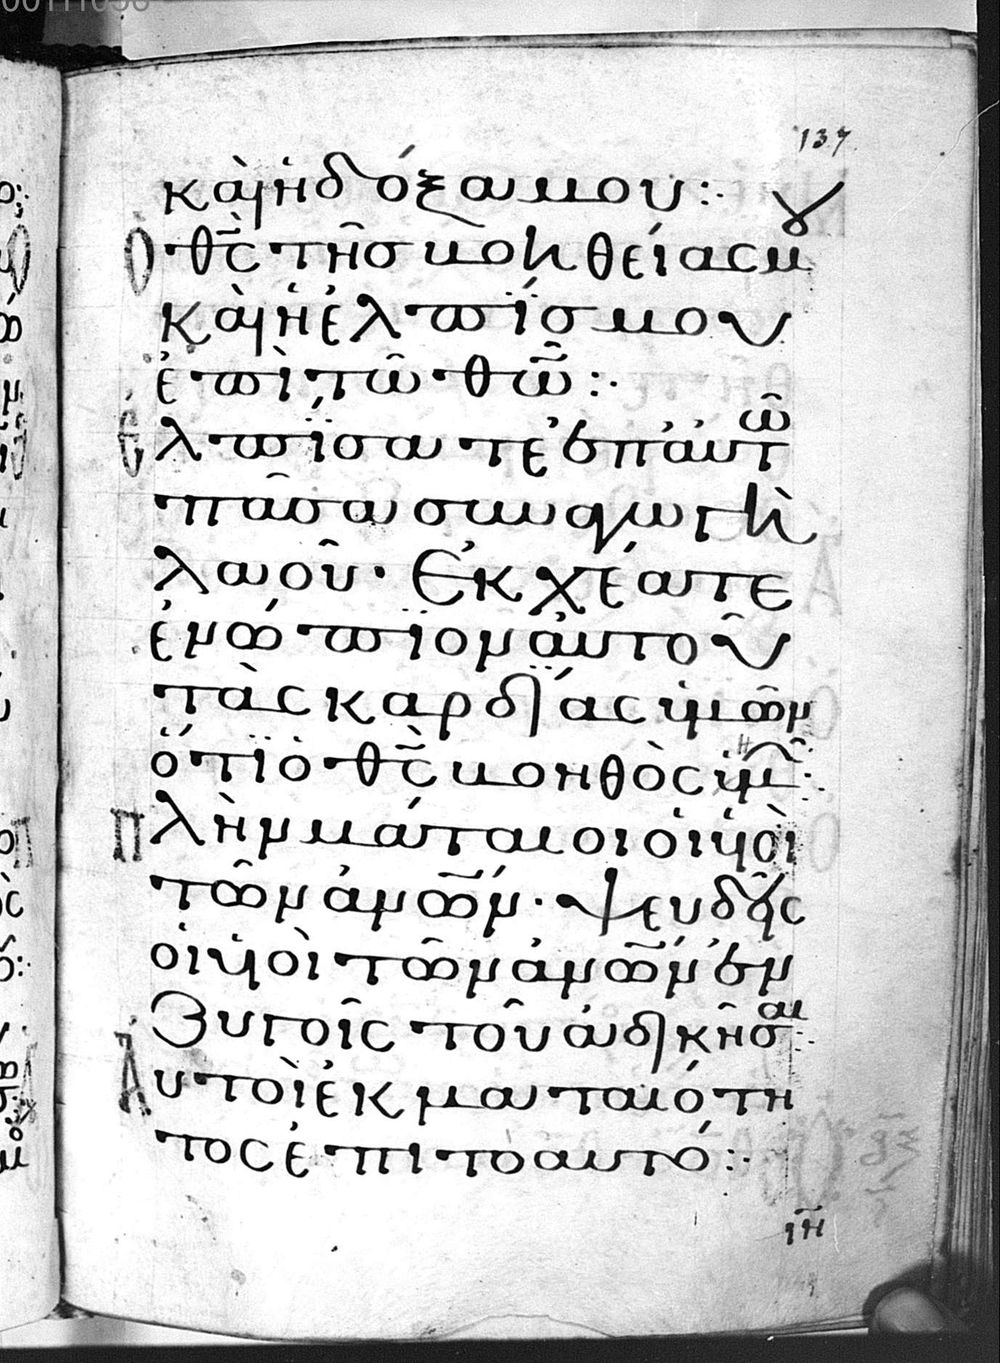 137
καὶ ἡ δόξα μου:·
Ὁ θ̅ς̅ τῆς βοηθείας μ
καὶ ἡ ἐλπίς μου
ἐπὶ τῶ θ̅ω̅:·
Ἐλπίσατε ἐπ' αὐτῶ
πᾶσα συναγωγὴ
λαοῦ· Ἐκχέατε
ἐνώπιον αὐτοῦ
τὰς καρδίας ὑμῶν
ὅτι ὁ θ̅ς̅ βοηθὸς ἡμῶν:·
Πλὴν μάταιοι οἱ υἱοὶ
τῶν ἀνῶν· ψευδεῖς
οἱ υἱοὶ τῶν ἀνῶν ἐν
ζυγοῖς τοῦ ἀδικῆσαι:
Αὐτοὶ ἐκ ματαιότη
τος ἐπιτοαυτό:·
ιη